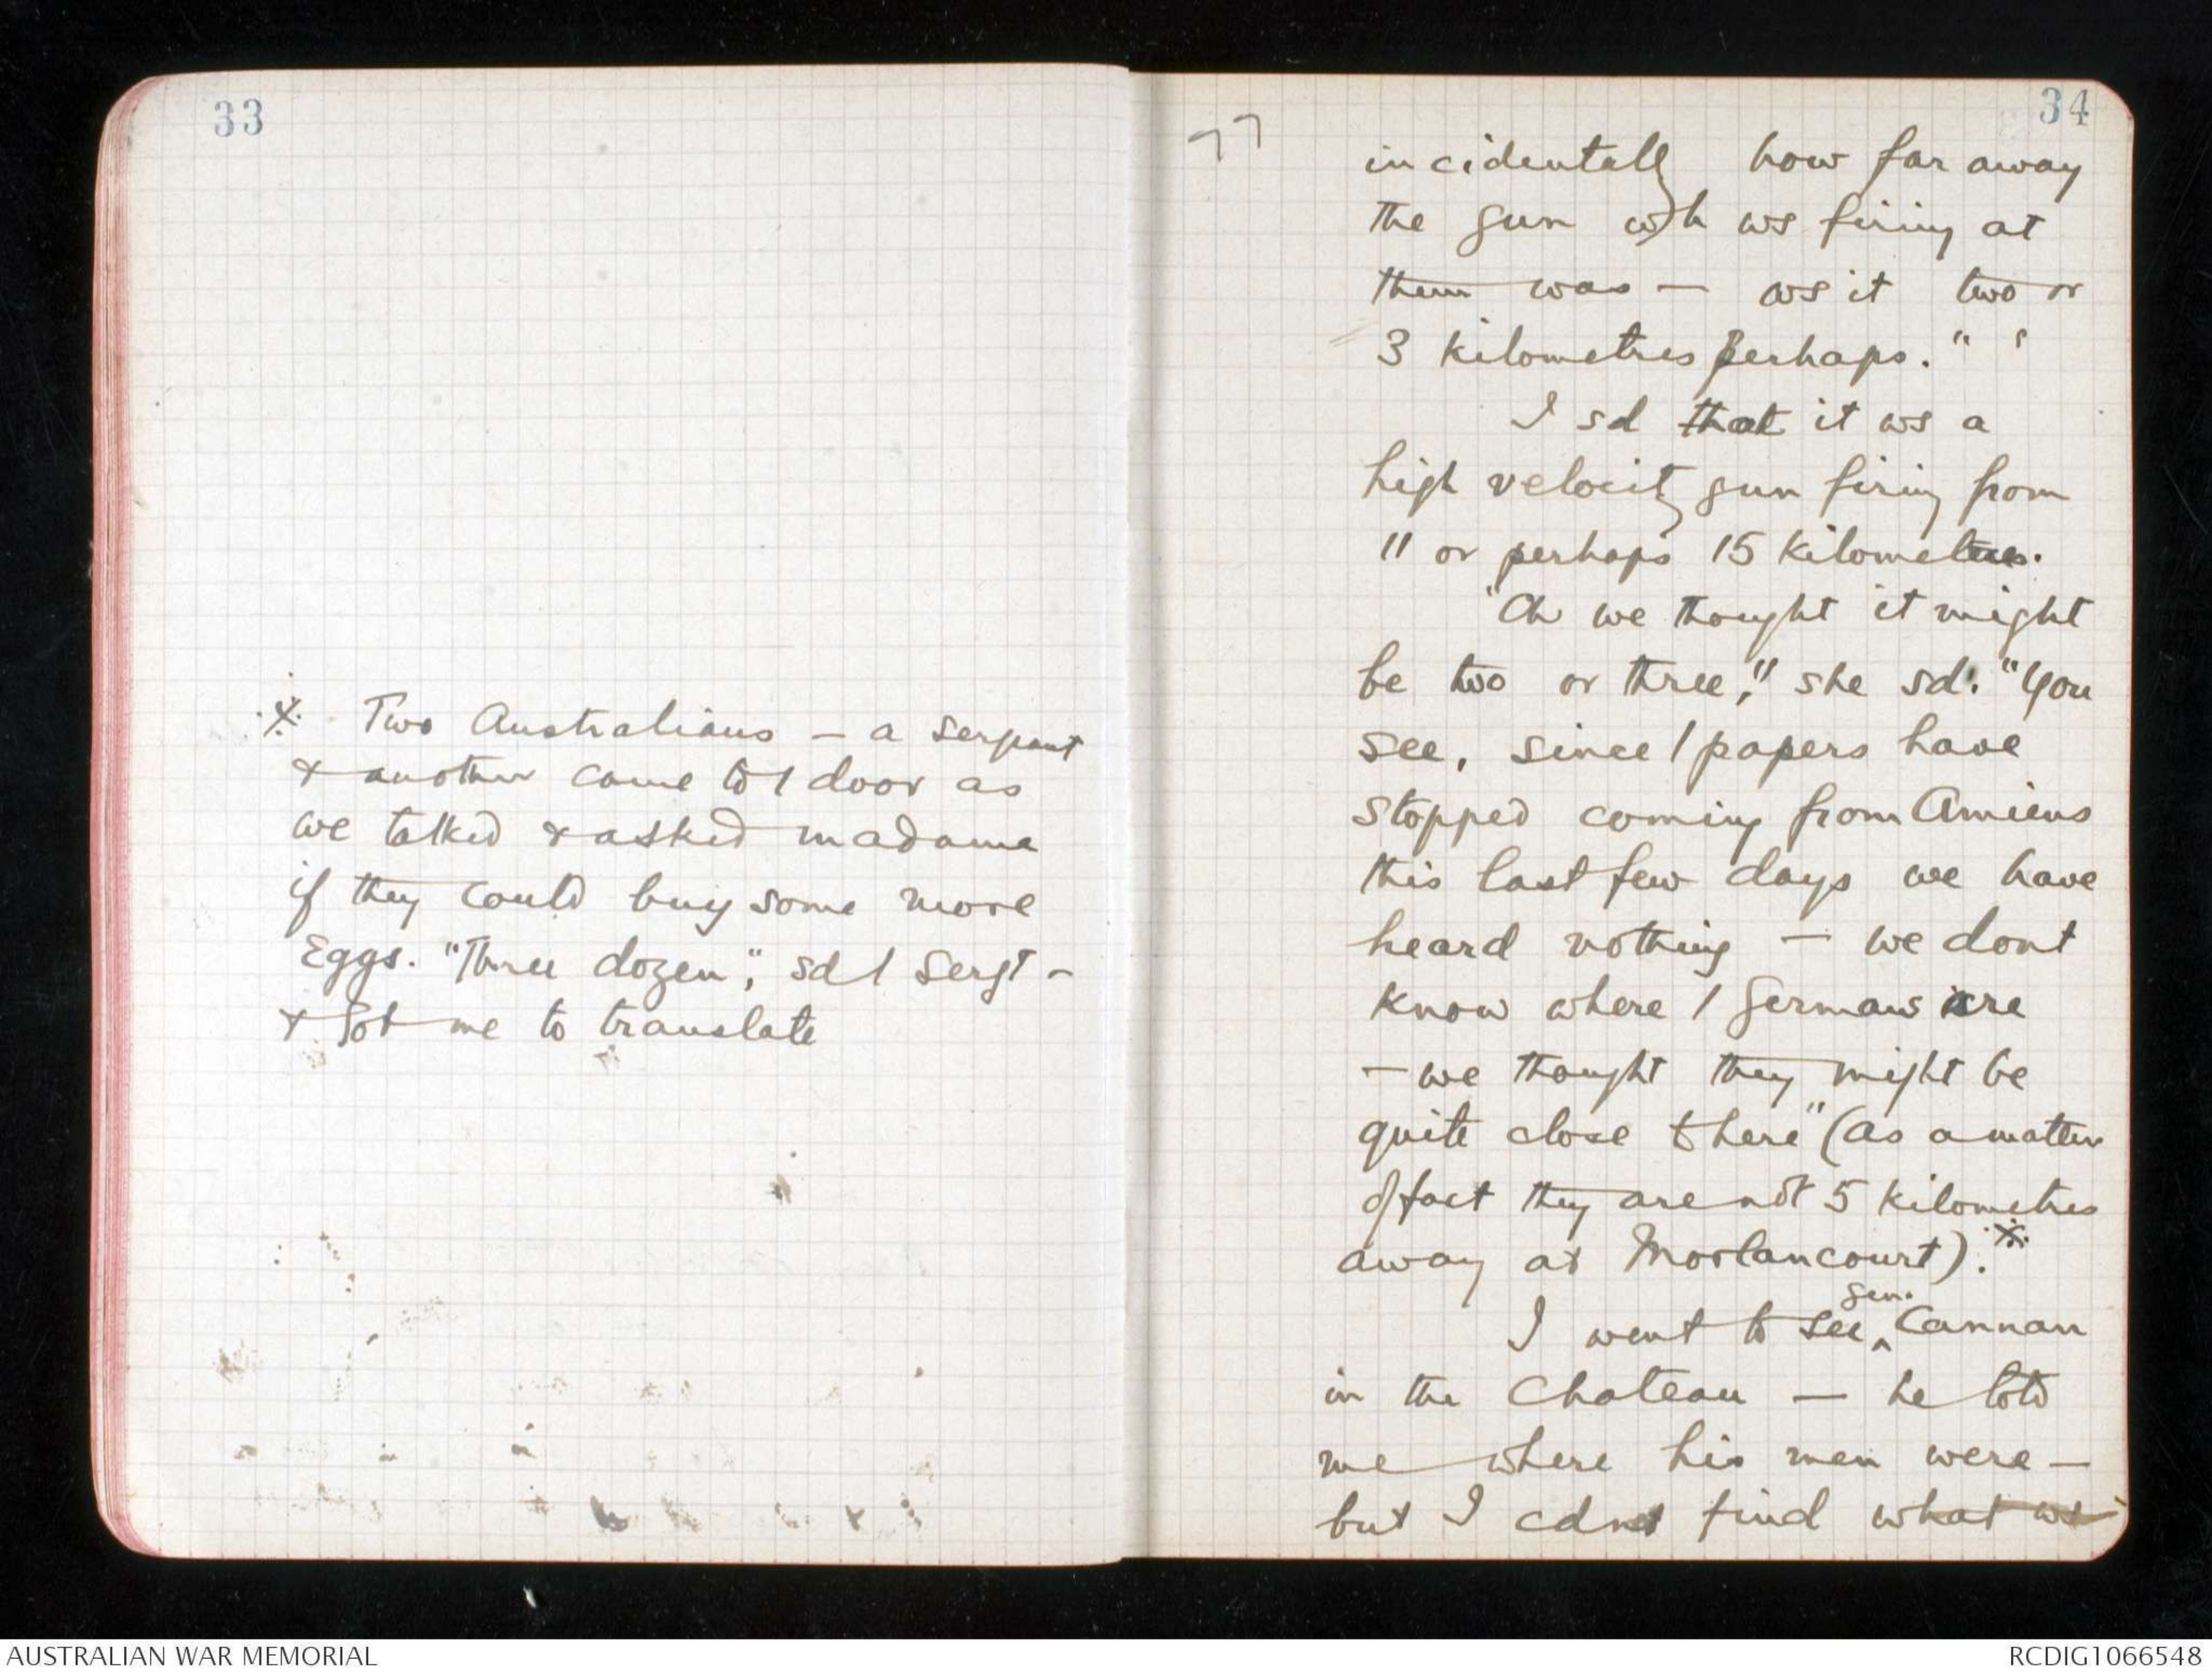 33
※ Two Australians – a sergeant
& another came to / door as
we talked & asked madame
if they could buy some more
Eggs. "Three dozen", sd / Sergt –
& got me to translate
34
77
incidentally how far away
the gun wh ws firing at
them was – ws it two or
3 kilometres perhaps." '
I sd that it ws a
high velocity gun firing from
11 or perhaps 15 kilometres.
"Oh we thought it might
be two or three," she sd. "You
see, since / papers have
stopped coming from Amiens
this last few days we have
heard nothing – we dont
know where / Germans are
– we thought they might be
quite close there" (as a matter
of fact they are not 5 kilometres
away at Morlancourt). ※
I went to see ^Gen. Cannan
in the Chateau – he told
me where his men were –
but I cdnt find what ws
AUSTRALIAN WAR MEMORIAL
RCDIG1066548